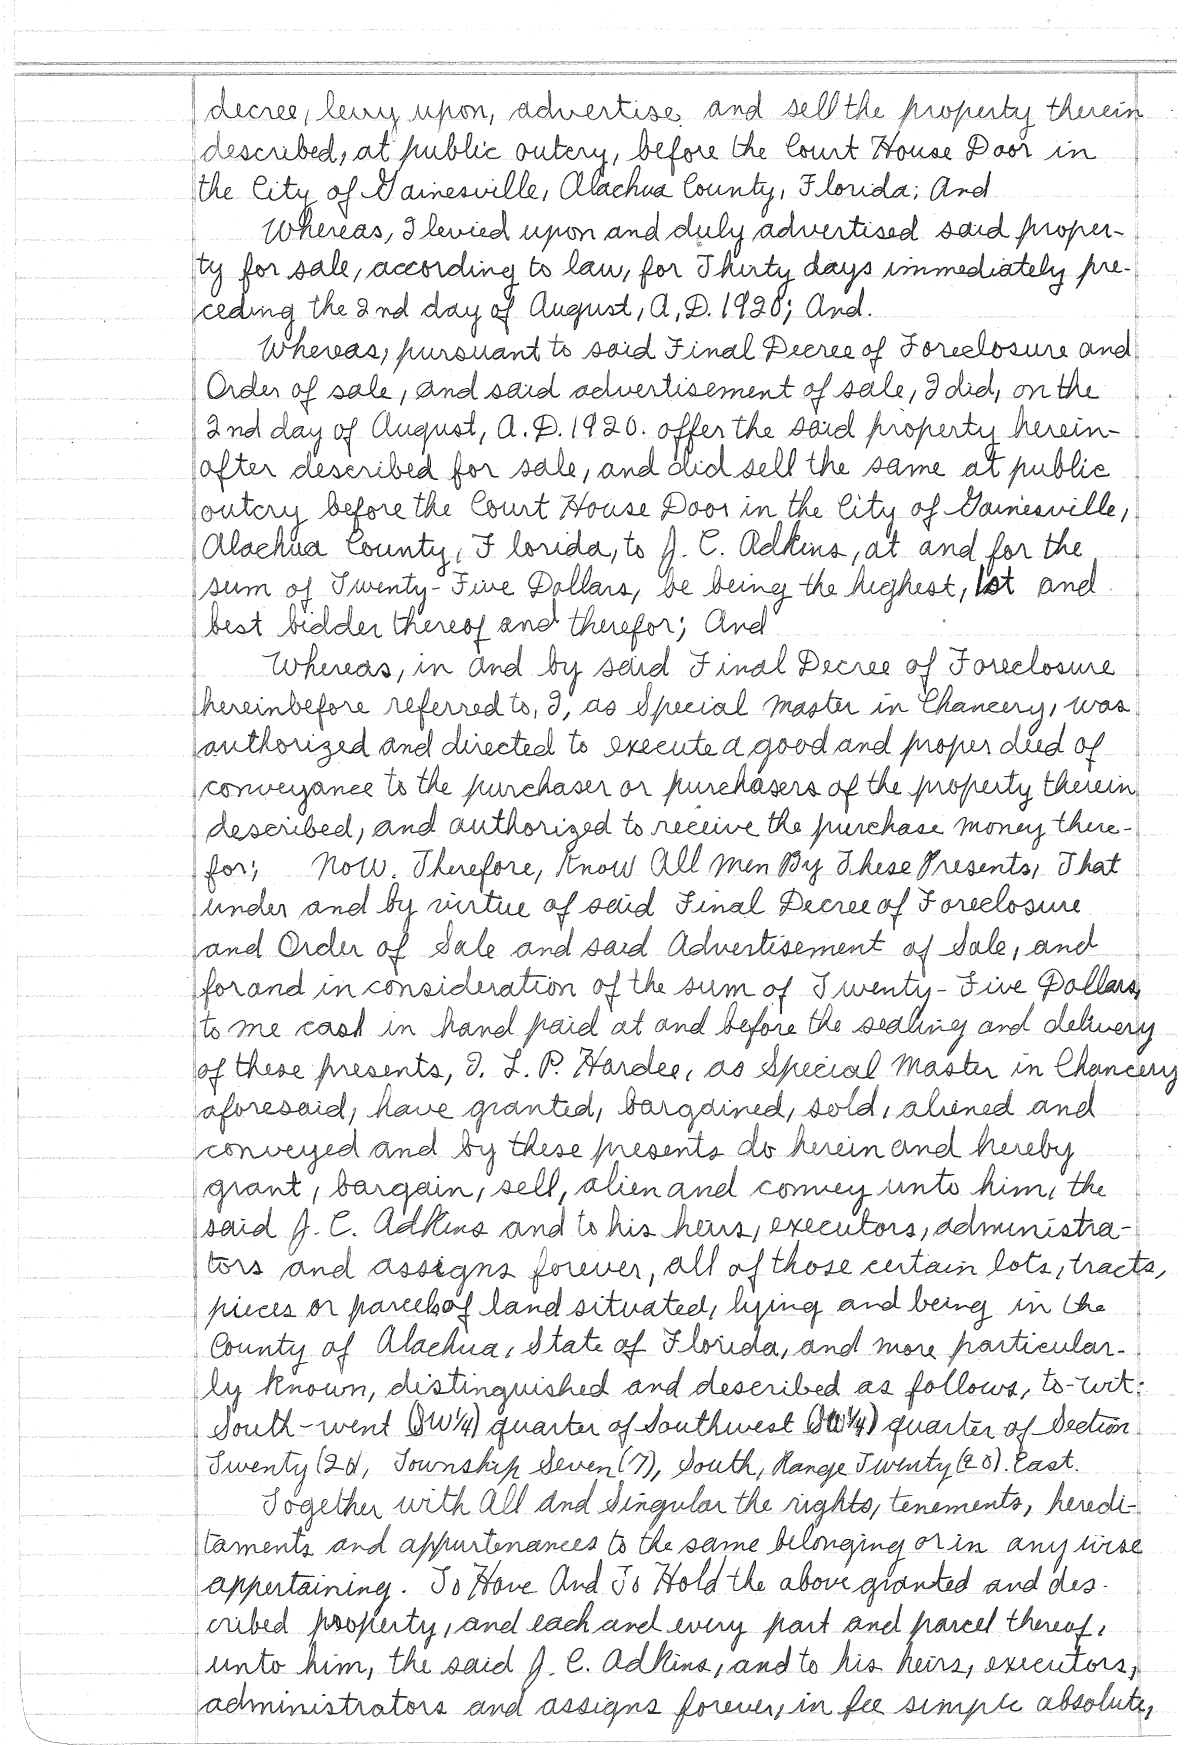 decree, levy upon, advertise and sell the property therein
described, at public outcry, before the Court House Door in
the City of Gainesville, Alachua County, Florida; And
Whereas, I levied upon and duly advertised said proper-
ty for sale, according to law, for Thirty days immediately pre-
ceding the 2nd day of August, A.D. 1920; And.
Whereas, pursuant to said Final Decree of Foreclosure and
Order of sale, and said advertisement of sale, I did, on the
2nd day of August, A.D. 1920. offer the said property herein-
after described for sale, and did sell the same at public
outcry before the Court House Door in the City of Gainesville,
Alachua County, Florida, to J. C. Adkins, at and for the
sum of Twenty-Five Dollars, be being the highest, 1st and
best bidder thereof and therefor; And
Whereas, in and by said Final Decree of Foreclosure
hereinbefore referred to, I, as Special Master in Chancery, was
authorized and directed to execute a good and proper deed of
conveyance to the purchaser or purchasers of the property therein
described, and authorized to receive the purchase money there-
for; Now. Therefore, Know All Men By These Presents, That
under and by virtue of said Final Decree of Foreclosure
and Order of Sale and said Advertisement of Sale, and
for and in consideration of the sum of Twenty-Five Dollars,
to me cash in hand paid at and before the sealing and delivery
of these presents, I. L. P. Hardee, as Special Master in Chancery
aforesaid, have granted, bargained, sold, aliened and
conveyed and by these presents do herein and hereby
grant, bargain, sell, alien and convey unto him, the
said J. C. Adkins and to his heirs, executors, administra-
tors and assigns forever, all of those certain lots, tracts,
pieces or parcels of land situated, lying and being in the
County of Alachua, State of Florida, and more particular-
ly known, distinguished and described as follows, to-wit:
South-went (SW1/4) quarter of Southwest (SW1/4) quarter of Section
Twenty (20), Township Seven (7), South, Range Twenty (20). East.
Together with All and Singular the rights, tenements, heredi-
taments and appurtenances to the same belonging or in any wise
appertaining. To Have And To Hold the above granted and des-
cribed property, and each and every part and parcel thereof,
unto him, the said J. C. Adkins, and to his heirs, executors,
administrators and assigns forever, in fee simple absolute,